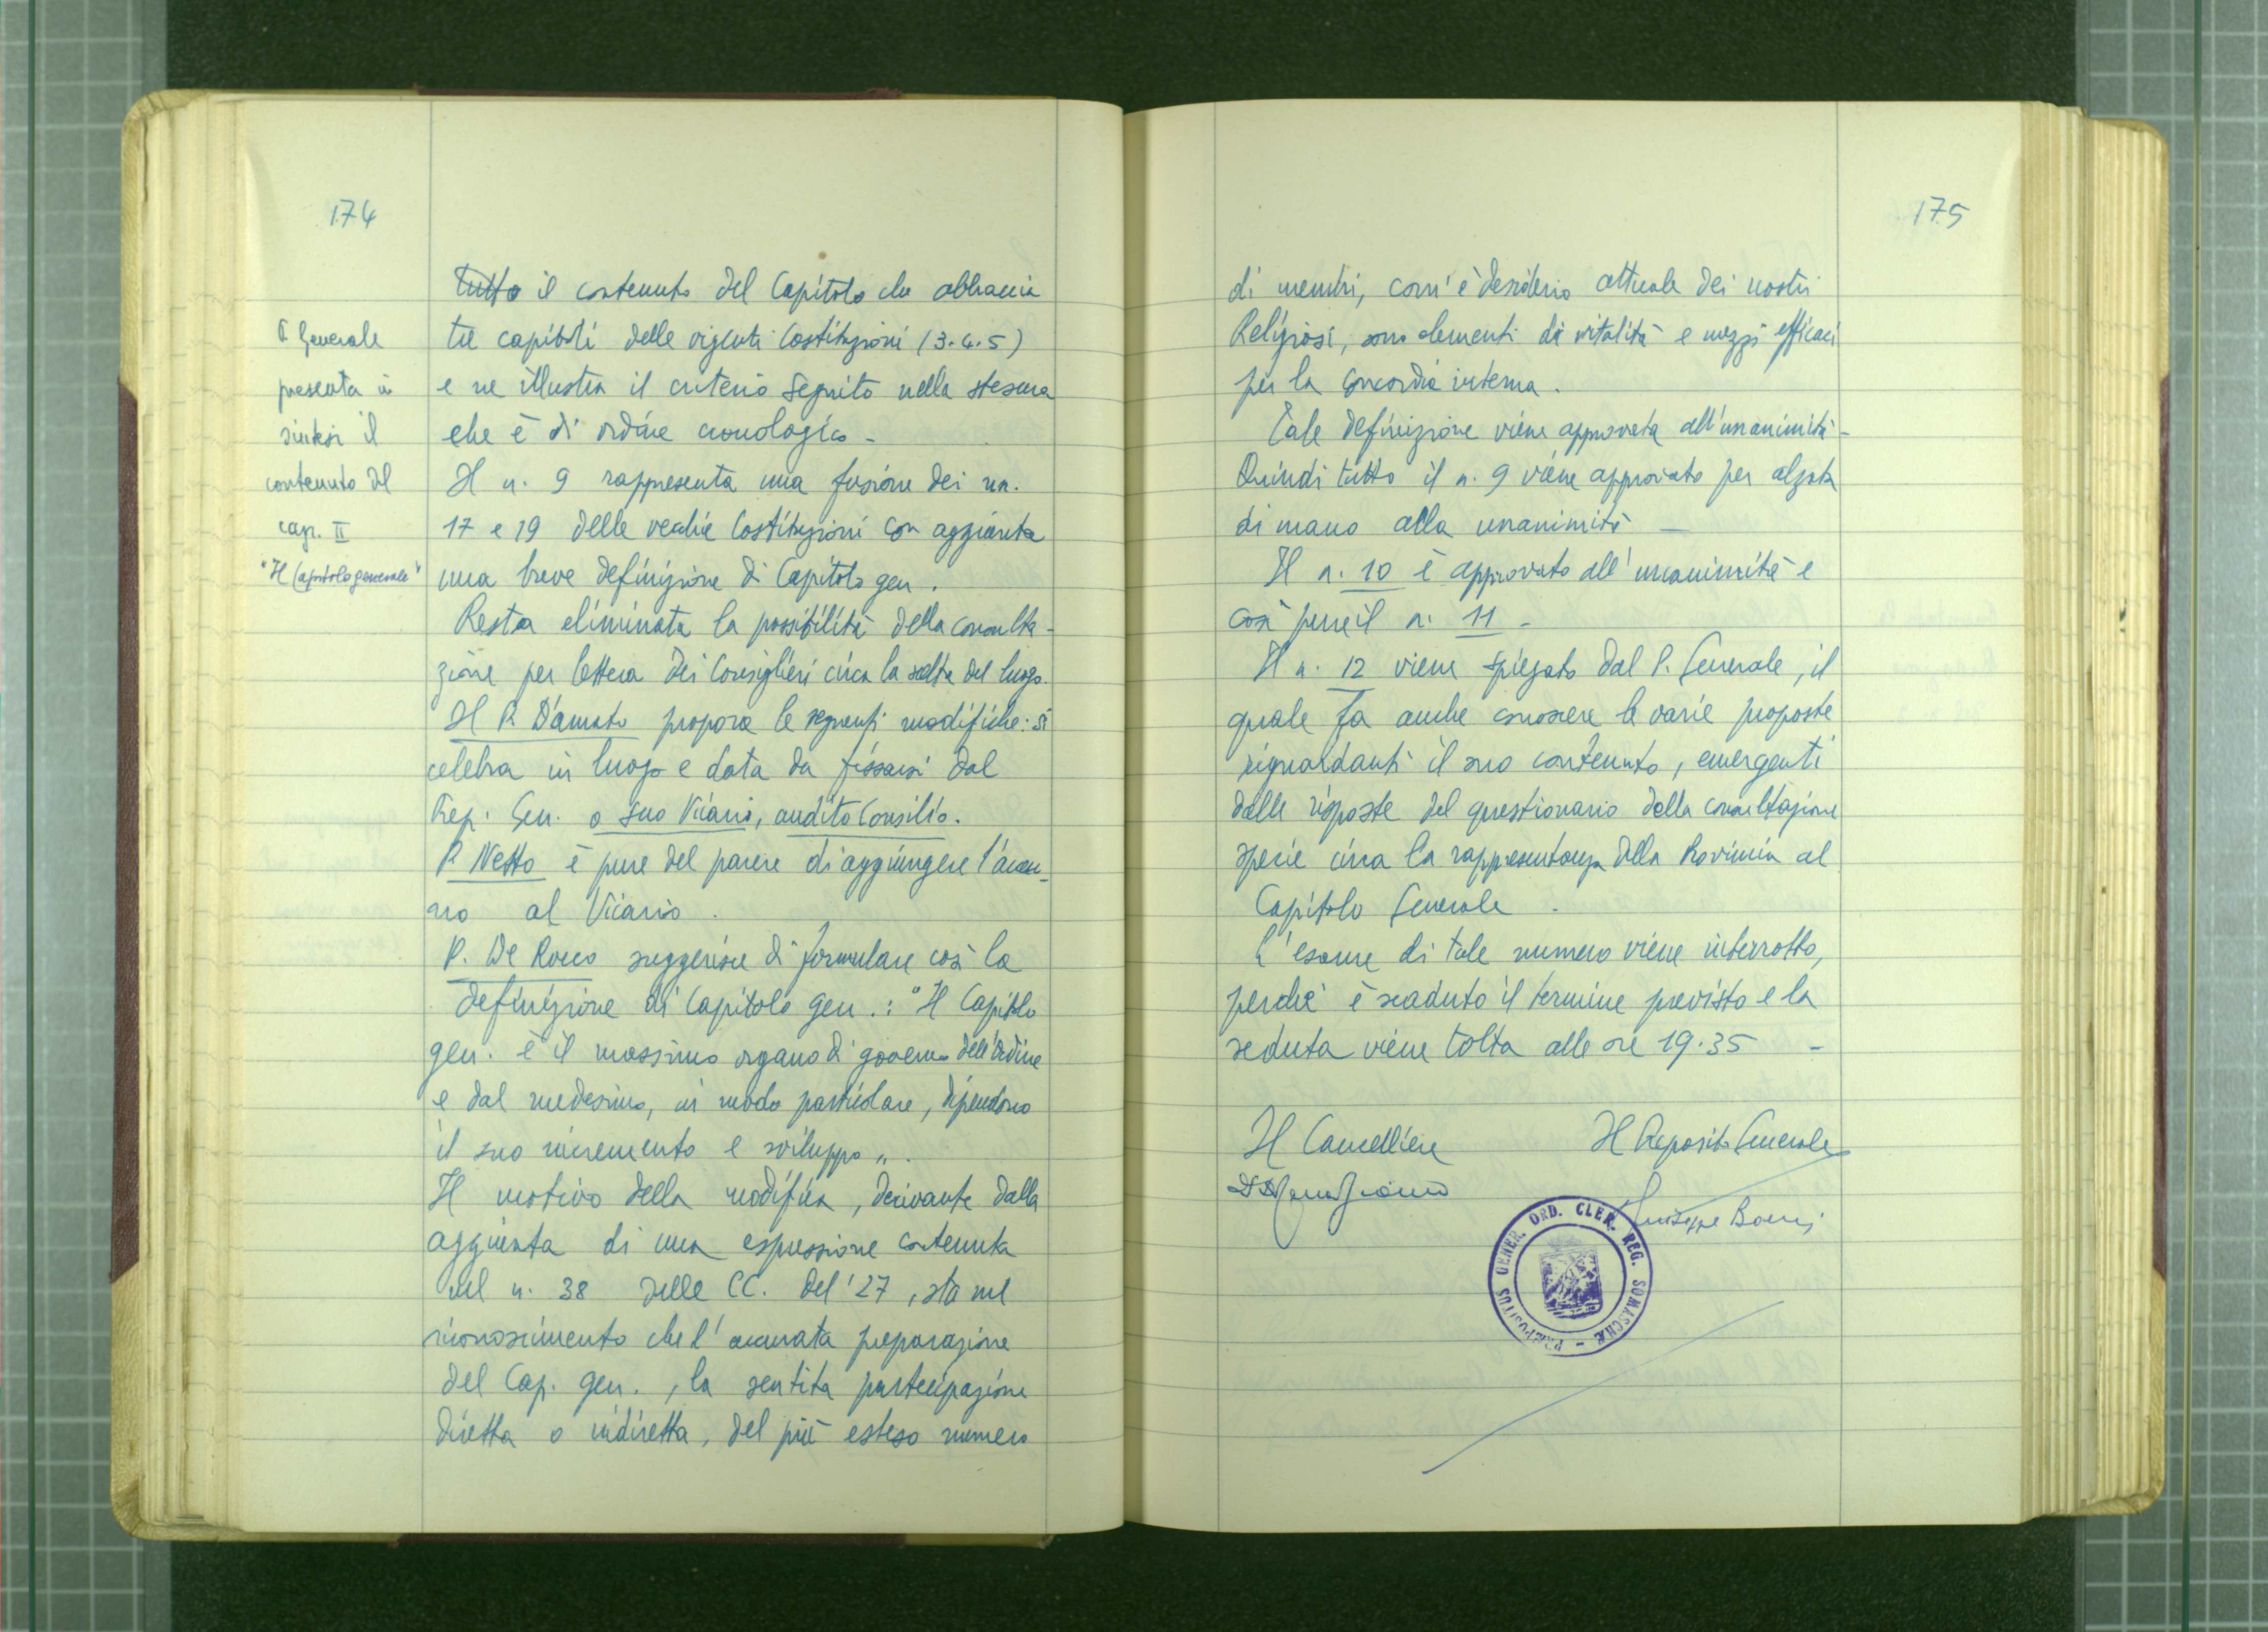 174
P. Generale
presenta in
sintesi il
contenuto del
cap. II
"Il Capitolo generale"
tutto il contenuto del Capitolo che abbraccia
tre capitoli delle vigenti Costituzioni (3.4.5)
e ne illustra il criterio seguito nella stesura
che è di ordine cronologico -
Il n. 9 rappresenta una fusione dei nn.
17 e 19 delle vecchie Costituzioni con aggiunta
una breve definizione di Capitolo gen.
Resta eliminata la possibilità della consulta-
zione per lettera dei Consiglieri circa la scelta del luogo.
Il P. D'Amato propone le seguenti modifiche: si
celebra in luogo e data da fissarsi dal
Prep. Gen. o suo Vicario, audito Consilio.
P. Netto è pure del parere di aggiungere l'accen-
no al Vicario.
P. De Rocco suggerisce di formulare così la
definizione di Capitolo gen.: "Il Capitolo
gen. è il massimo organo di governo dell'Ordine
e dal medesimo, in modo particolare, dipendono
il suo incremento e sviluppo".
Il motivo della modifica, derivante dalla
aggiunta di una espressione contenuta
nel n. 38 delle CC. del '27, sta nel
riconoscimento che l'accurata preparazione
del Cap. gen., la sentita partecipazione
diretta o indiretta, del più esteso numero
175
di membri, com'è desiderio attuale dei nostri
Religiosi, sono elementi di vitalità e mezzi efficaci
per la concordia interna.
Tale definizione viene approvata all'unanimità -
Quindi tutto il n. 9 viene approvato per alzata
di mano alla unanimità -
Il n. 10 è approvato all'unanimità e
così pure il n. 11 -
Il n. 12 viene spiegato dal P. Generale, il
quale fa anche conoscere le varie proposte
riguardanti il suo contenuto, emergenti
dalle risposte del questionario della consultazione
specie circa la rappresentanza della Provincia al
Capitolo Generale.
L'esame di tale numero viene interrotto,
perché è scaduto il termine previsto e la
seduta viene tolta alle ore 19.35 -
Il Cancelliere
Il Preposito Generale
Giuseppe Boeris
PRÆPOSITUS GENER. ORD. CLER. REG. SOMASCHÆ -